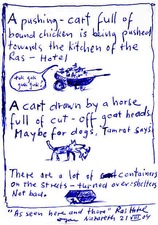 A pushing-cart full of
bound chicken is being pushed
towards the kitchen of the
Ras-Hotel
A cart drawn by a horse
full of cut-off goat heads.
Maybe for dogs, Tamrat says.
There are a lot of containers
on the streets - turned over - shelters
Not bad.
"As seen here and there" Ras Hotel
Nazareth 21